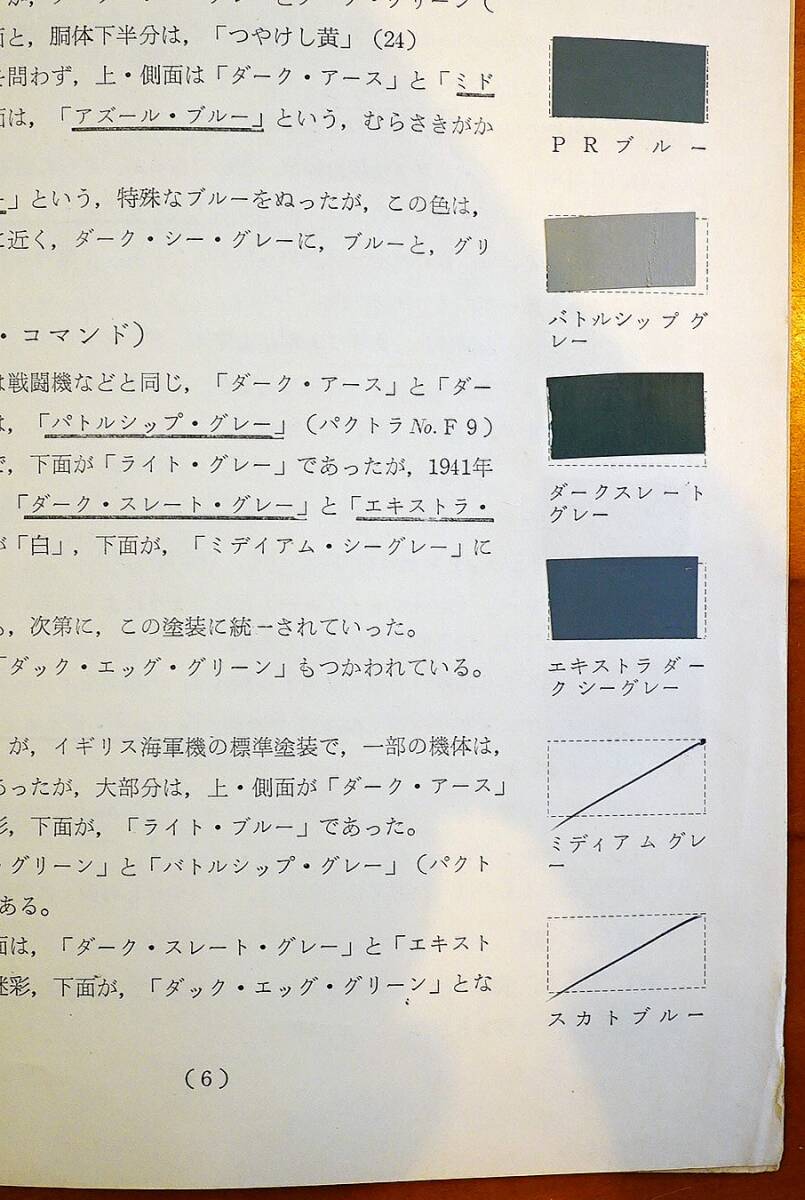 面と，胴体下半分は，「つやけし黄」(24)
を問わず，上・側面は「ダーク・アース」と「ミド
面は，「アズール・ブルー」という，むらさきがか
ー」という，特殊なブルーをぬったが，この色は，
に近く，ダーク・シー・グレーに，ブルーと，グリ
・コマンド）
は戦闘機などと同じ，「ダーク・アース」と「ダー
は，「バトルシップ・グレー」（パクトラNo.F9）
で，下面が「ライト・グレー」であったが，1941年
「ダーク・スレート・グレー」と「エキストラ・
が「白」，下面が，「ミデイアム・シーグレー」に
も，次第に，この塗装に統一されていった。
「ダック・エッグ・グリーン」もつかわれている。
が，イギリス海軍機の標準塗装で，一部の機体は，
あったが，大部分は，上・側面が「ダーク・アース」
彩，下面が，「ライト・ブルー」であった。
・グリーン」と「バトルシップ・グレー」（パクト
ある。
面は，「ダーク・スレート・グレー」と「エキスト
迷彩，下面が，「ダック・エッグ・グリーン」とな
(6)
PRブルー
バトルシップグ
レー
ダークスレート
グレー
エキストラダー
クシーグレー
ミディアムグレ
ー
スカトブルー